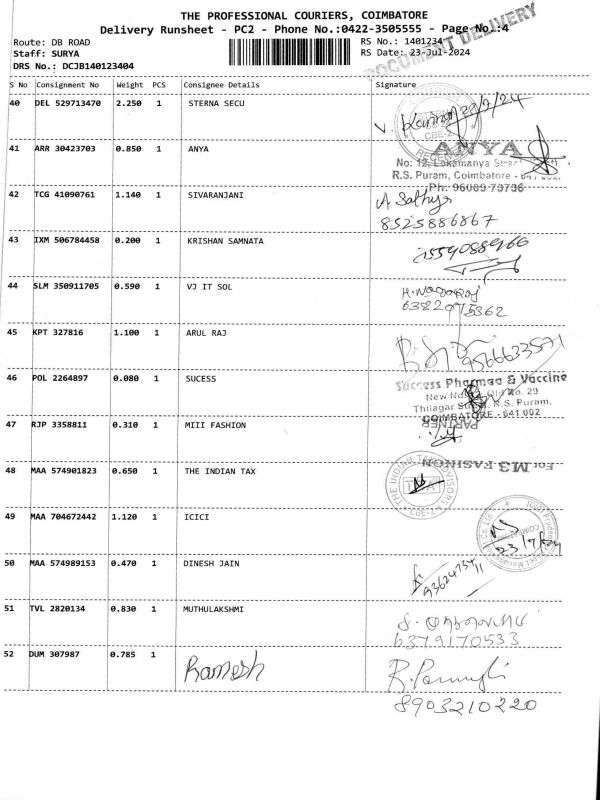 THE PROFESSIONAL COURIERS, COIMBATORE
Delivery Runsheet - PC2 - Phone No.:0422-3505555 - Page No.:4
DOCUMENT DELIVERY
Route: DB ROAD RS No.: 1401234
Staff: SURYA RS Date: 23-Jul-2024
DRS No.: DCJB140123404
S No Consignment No Weight PCS Consignee Details Signature
40 DEL 529713470 2.250 1 STERNA SECU
CBE-2
41 ARR 30423703 0.850 1 ANYA ANYA
No: 12, Lokamanya Street
R.S. Puram, Coimbatore -
Ph: 96009 73736
42 TCG 41090761 1.140 1 SIVARANJANI A Sathya
8525886867
43 IXM 506784458 0.200 1 KRISHAN SAMNATA
44 SLM 350911705 0.590 1 VJ IT SOL H.Nagaraj
6382975362
45 KPT 327816 1.100 1 ARUL RAJ 9566633571
46 POL 2264897 0.080 1 SUCESS Success Pharmaa & Vaccine
New No. Old No. 29
Thilagar Street, R.S. Puram,
COIMBATORE - 641 002
47 RJP 3358811 0.310 1 MIII FASHION PARTNER
For M3 FASHION
48 MAA 574901823 0.650 1 THE INDIAN TAX THE INDIAN TAX ADVISORS
49 MAA 704672442 1.120 1 ICICI
50 MAA 574989153 0.470 1 DINESH JAIN
51 TVL 2820134 0.830 1 MUTHULAKSHMI
6379170533
52 DUM 307987 0.785 1 Ramesh
8903210220